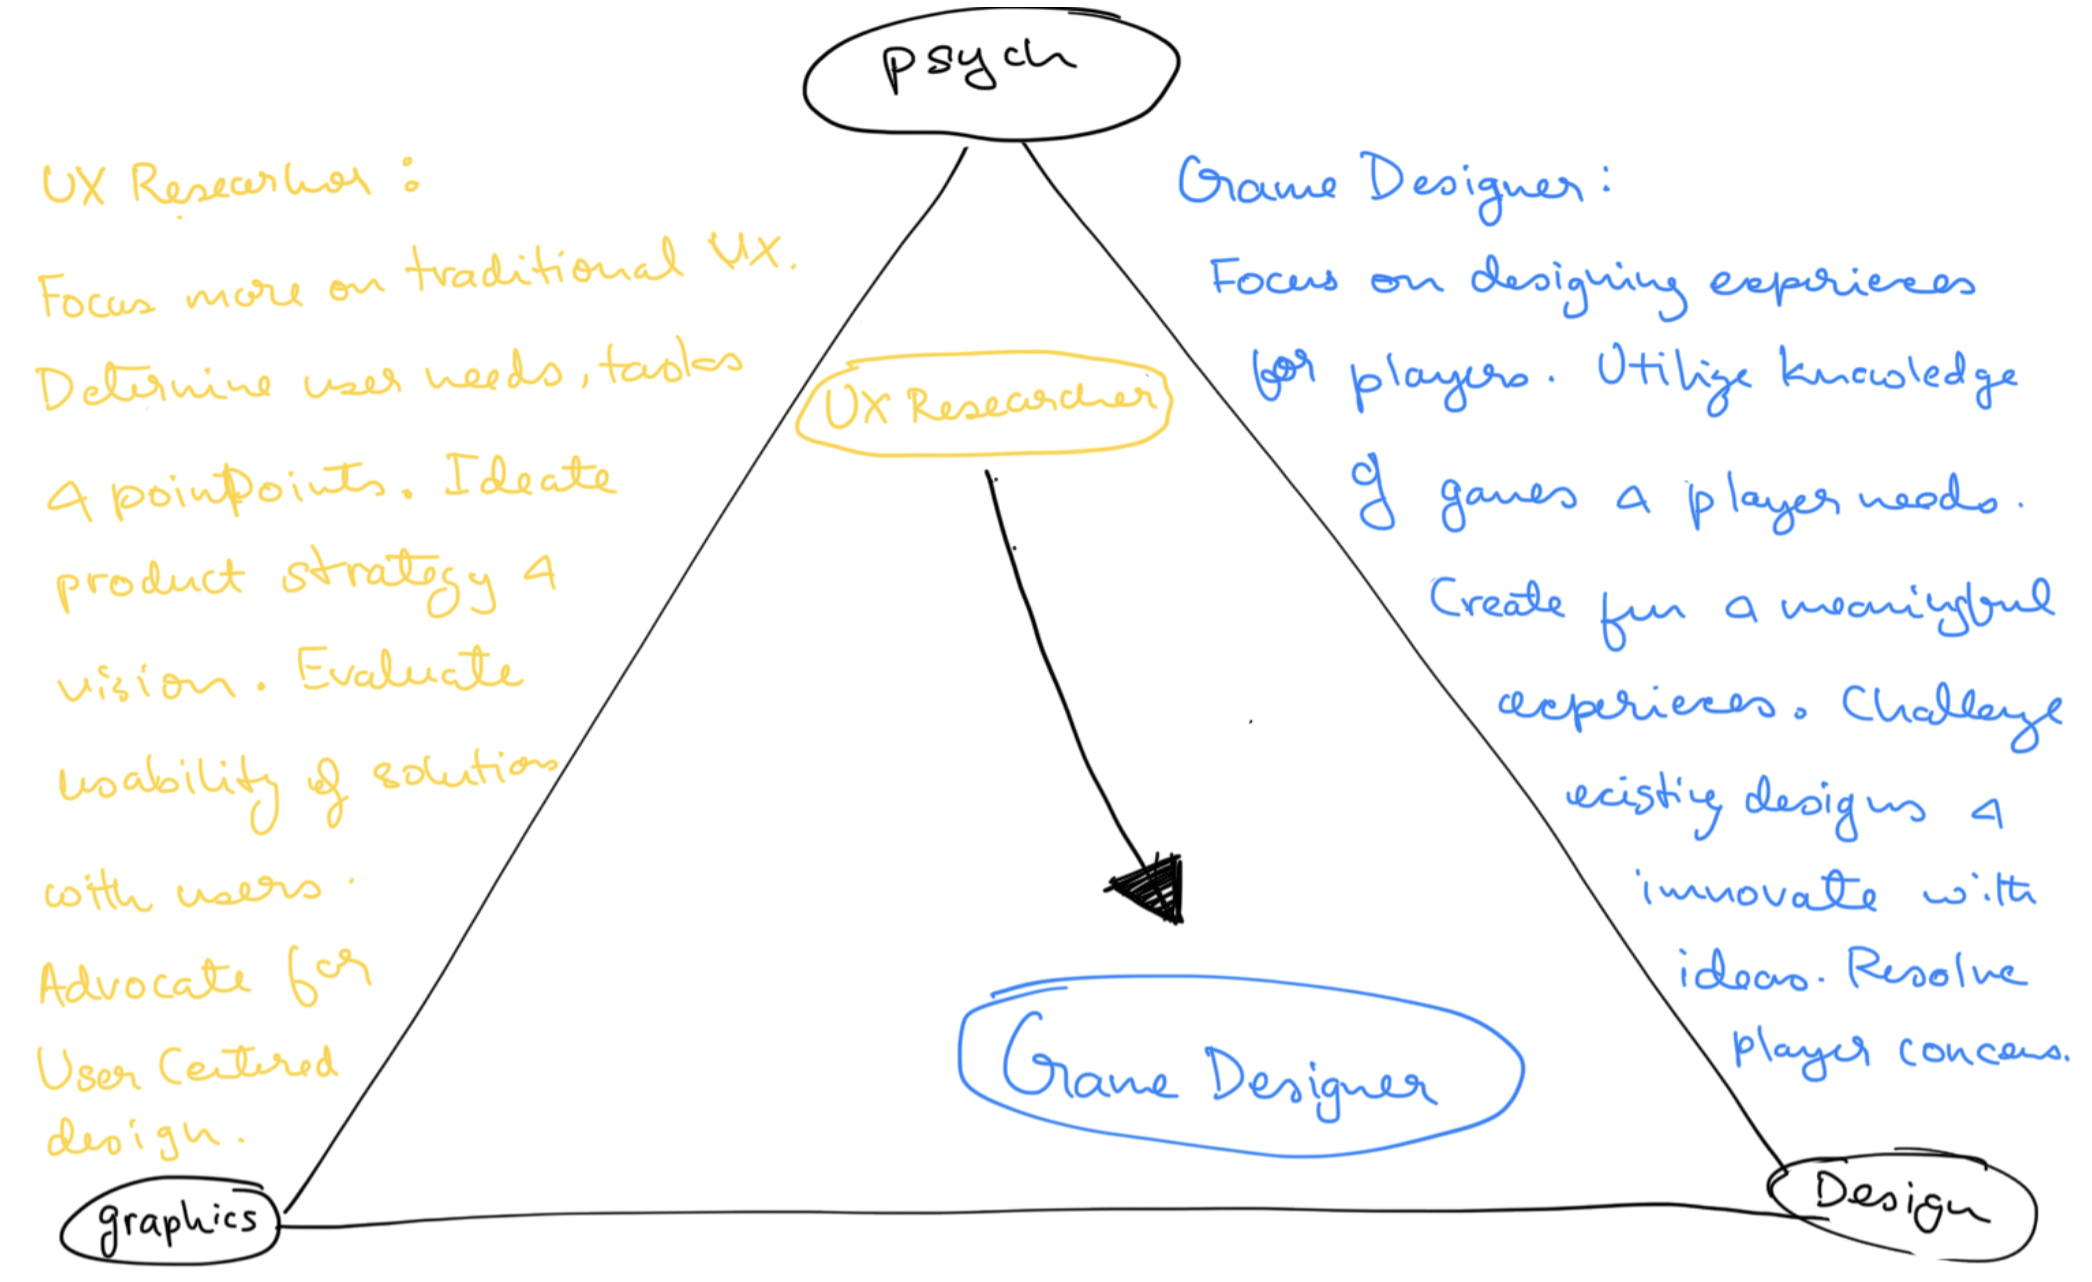 psych
UX Researcher :
Focus more on traditional UX.
Determine user needs, tasks
& pointpoints. Ideate
product strategy &
vision. Evaluate
usability of solutions
with users.
Advocate for
User Centered
design.
UX Researcher
Game Designer
Game Designer :
Focus on designing experiences
for players. Utilize knowledge
of games & player needs.
Create fun & meaningful
experiences. Challenge
existing designs &
innovate with
ideas. Resolve
player concerns.
graphics
Design